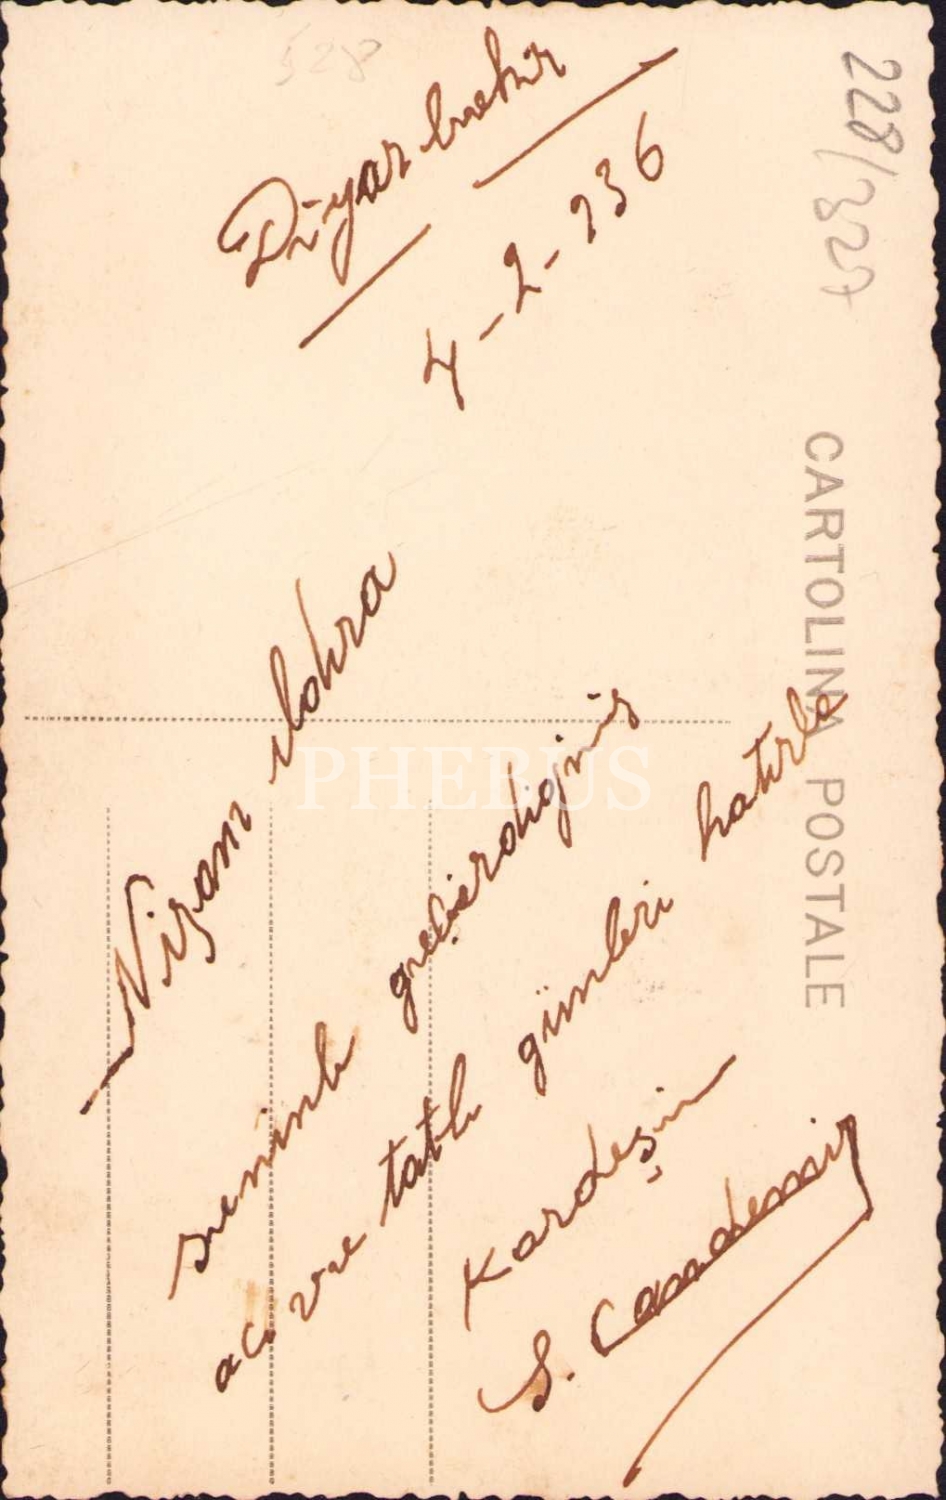 528
Diyarbekir
4-2-936
228/327
CARTOLINA POSTALE
Nizam
seninle geçirdiğimiz
acı ve tatlı günleri hatırla
Kardeşin
S. Candemir
PHEBUS